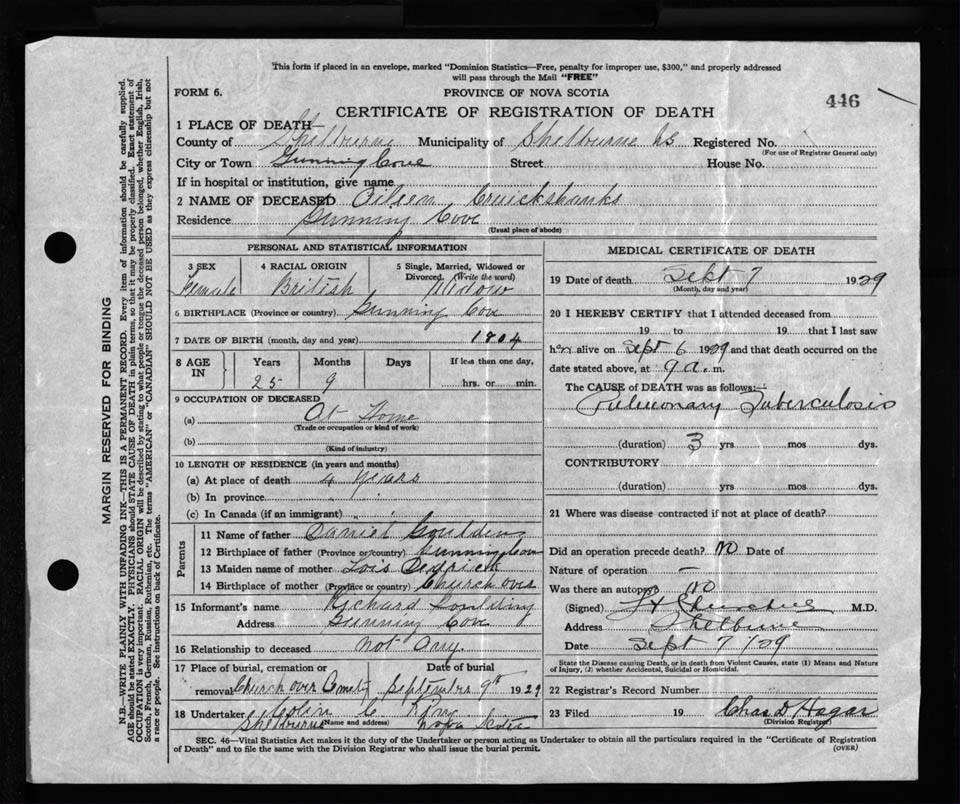 This form if placed in an envelope, marked "Dominion Statistics—Free, penalty for improper use, $300," and properly addressed
will pass through the Mail "FREE"
FORM 6.
PROVINCE OF NOVA SCOTIA
446
CERTIFICATE OF REGISTRATION OF DEATH
1 PLACE OF DEATH—
County of Shelburne Municipality of Shelburne NS Registered No.
(For use of Registrar General only)
City or Town Gunning Cove Street House No.
If in hospital or institution, give name
2 NAME OF DECEASED Aileen Cruickshanks
Residence Gunning Cove
(Usual place of abode)
PERSONAL AND STATISTICAL INFORMATION
3 SEX 4 RACIAL ORIGIN 5 Single, Married, Widowed or
Divorced. (Write the word)
Female British Widow
6 BIRTHPLACE (Province or country) Gunning Cove
7 DATE OF BIRTH (month, day and year) 1904
8 AGE IN Years Months Days If less than one day,
25 9 hrs. or min.
9 OCCUPATION OF DECEASED
(a) At Home
(Trade or occupation or kind of work)
(b)
(Kind of industry)
10 LENGTH OF RESIDENCE (in years and months)
(a) At place of death 4 years
(b) In province
(c) In Canada (if an immigrant)
Parents
11 Name of father Daniel Goulding
12 Birthplace of father (Province or country) Gunning Cove
13 Maiden name of mother Lois Dedrick
14 Birthplace of mother (Province or country) Church over
15 Informant's name Richard Goulding
Address Gunning Cove
16 Relationship to deceased Not any.
17 Place of burial, cremation or Date of burial
removal Church over September 9th 1929
18 Undertaker Colin C
Shelburne (Name and address) Nova Scotia
MEDICAL CERTIFICATE OF DEATH
19 Date of death Sept 7 1929
(Month, day and year)
20 I HEREBY CERTIFY that I attended deceased from
19 to 19 that I last saw
her alive on Sept 6 1929 and that death occurred on the
date stated above, at 9 a. m.
The CAUSE of DEATH was as follows:—
Pulmonary Tuberculosis
(duration) 3 yrs mos dys.
CONTRIBUTORY
(duration) yrs mos dys.
21 Where was disease contracted if not at place of death?
Did an operation precede death? No Date of
Nature of operation —
Was there an autopsy No
(Signed) M.D.
Address Shelburne
Date Sept 7/29
State the Disease causing Death, or in death from Violent Causes, state (1) Means and Nature
of Injury, (2) whether Accidental, Suicidal or Homicidal.
22 Registrar's Record Number
23 Filed 19 Chas D Hagar
(Division Registrar)
SEC. 46—Vital Statistics Act makes it the duty of the Undertaker or person acting as Undertaker to obtain all the particulars required in the "Certificate of Registration
of Death" and to file the same with the Division Registrar who shall issue the burial permit.
(OVER)
MARGIN RESERVED FOR BINDING
N.B.—WRITE PLAINLY WITH UNFADING INK—THIS IS A PERMANENT RECORD. Every item of information should be carefully supplied.
AGE should be stated EXACTLY. PHYSICIANS should STATE CAUSE OF DEATH in plain terms, so that it may be properly classified. Exact statement of
OCCUPATION is very important. RACIAL ORIGIN will be described by stating to what people or tongue the deceased person belonged, whether English, Irish,
Scotch, French, German, Russian, Ruthenian, etc. The terms "AMERICAN" or "CANADIAN" SHOULD NOT BE USED as they express citizenship but not
a race or people. See instructions on back of Certificate.